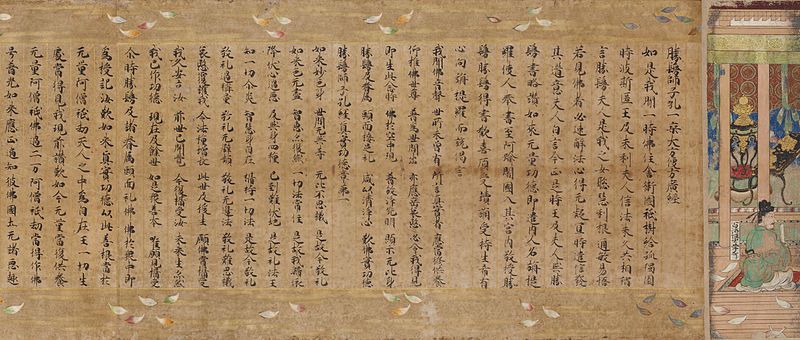 勝鬘師子吼一乘大方便方廣經
如是我聞一時佛住舍衛國祇樹給孤獨園
時波斯匿王及末利夫人信法未久共相謂
言勝鬘夫人是我之女聰慧利根通敏易悟
若見佛者必速解法心得无疑宜時遣信發
其道意夫人白言今正是時王及夫人與勝
鬘書略讚如來无量功德即遣内人名旃提
羅使人奉書至阿踰闍國入其宮内敬授勝
鬘勝鬘得書歡喜頂受讀誦受持生希有
心向旃提羅而說偈言
我聞佛音聲 世所未曾有 所言真實者 應當修供養
仰惟佛世尊 普為世間出 亦應垂哀愍 必令我得見
即生此念時 佛於空中現 普放淨光明 顯示无比身
勝鬘及眷屬 頭面接足礼 咸以清淨心 歎佛實功德
勝鬘師子吼經真實功德章第一
如來妙色身 世間无與等 无比不思議 是故今敬礼
如來色无盡 智慧亦復然 一切法常住 是故我歸依
降伏心過惡 及與身四種 已到難伏地 是故礼法王
知一切尒炎 智慧身自在 攝持一切法 是故今敬礼
敬礼過稱量 敬礼无譬類 敬礼无邊法 敬礼難思議
哀愍覆護我 令法種增長 此世及後生 願佛常攝受
我久安立汝 前世已開覺 今復攝受汝 未來生亦然
我已作功德 現在及餘世 如是衆善本 唯願見攝受
尒時勝鬘及諸眷屬頭面礼佛佛於衆中即
為授記汝歎如來真實功德以此善根當於
无量阿僧祇劫天人之中為自在王一切生
處常得見我現前讚歎如今无異當復供養
无量阿僧祇佛過二万阿僧祇劫當得作佛
号普光如來應正遍知彼佛國土无諸惡趣